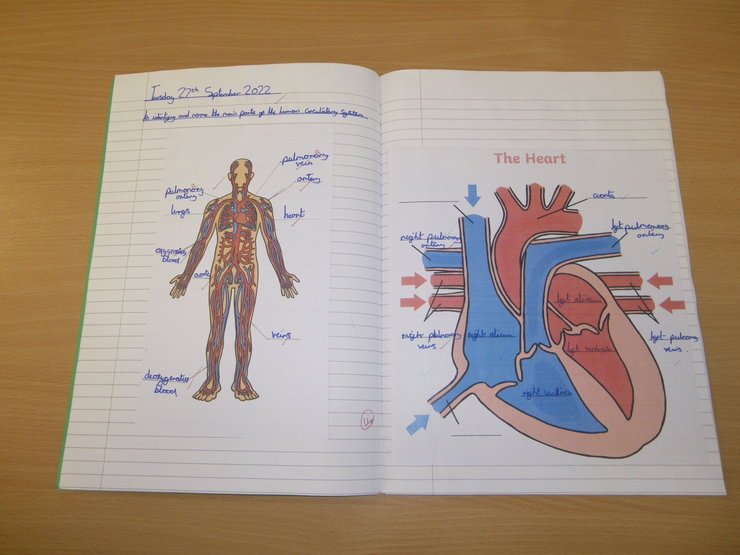 Tuesday 27th September 2022
to identify and name the main parts of the human circulatory system.
pulmonary
vein
artery
pulmonary
artery
lungs
heart
oxygenated
blood
aorta
veins
deoxygenated
blood
The Heart
aorta
right pulmonary
artery
left pulmonary
artery
left atrium
right pulmonary
veins
right atrium
left ventricle
left pulmonary
veins
right ventricle